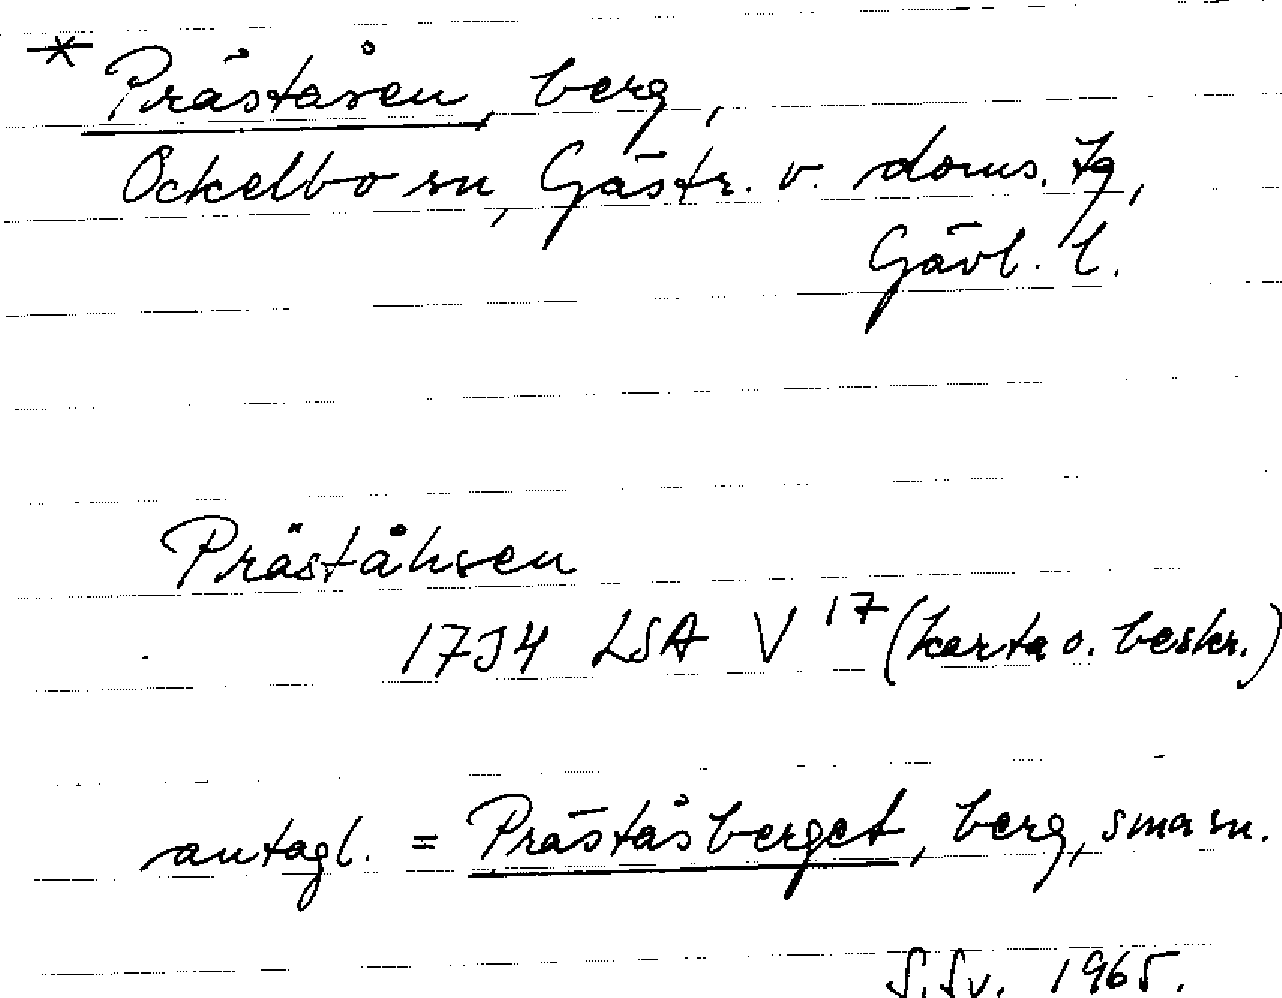 * Präståsen, berg,
Ockelbo sn, Gästr. v. doms. tg,
Gävl. l.
Präståhsen
1734 LSA V 17 (karta o. beskr.)
antagl. = Präståsberget, berg, sma sn.
S.Sv. 1965.